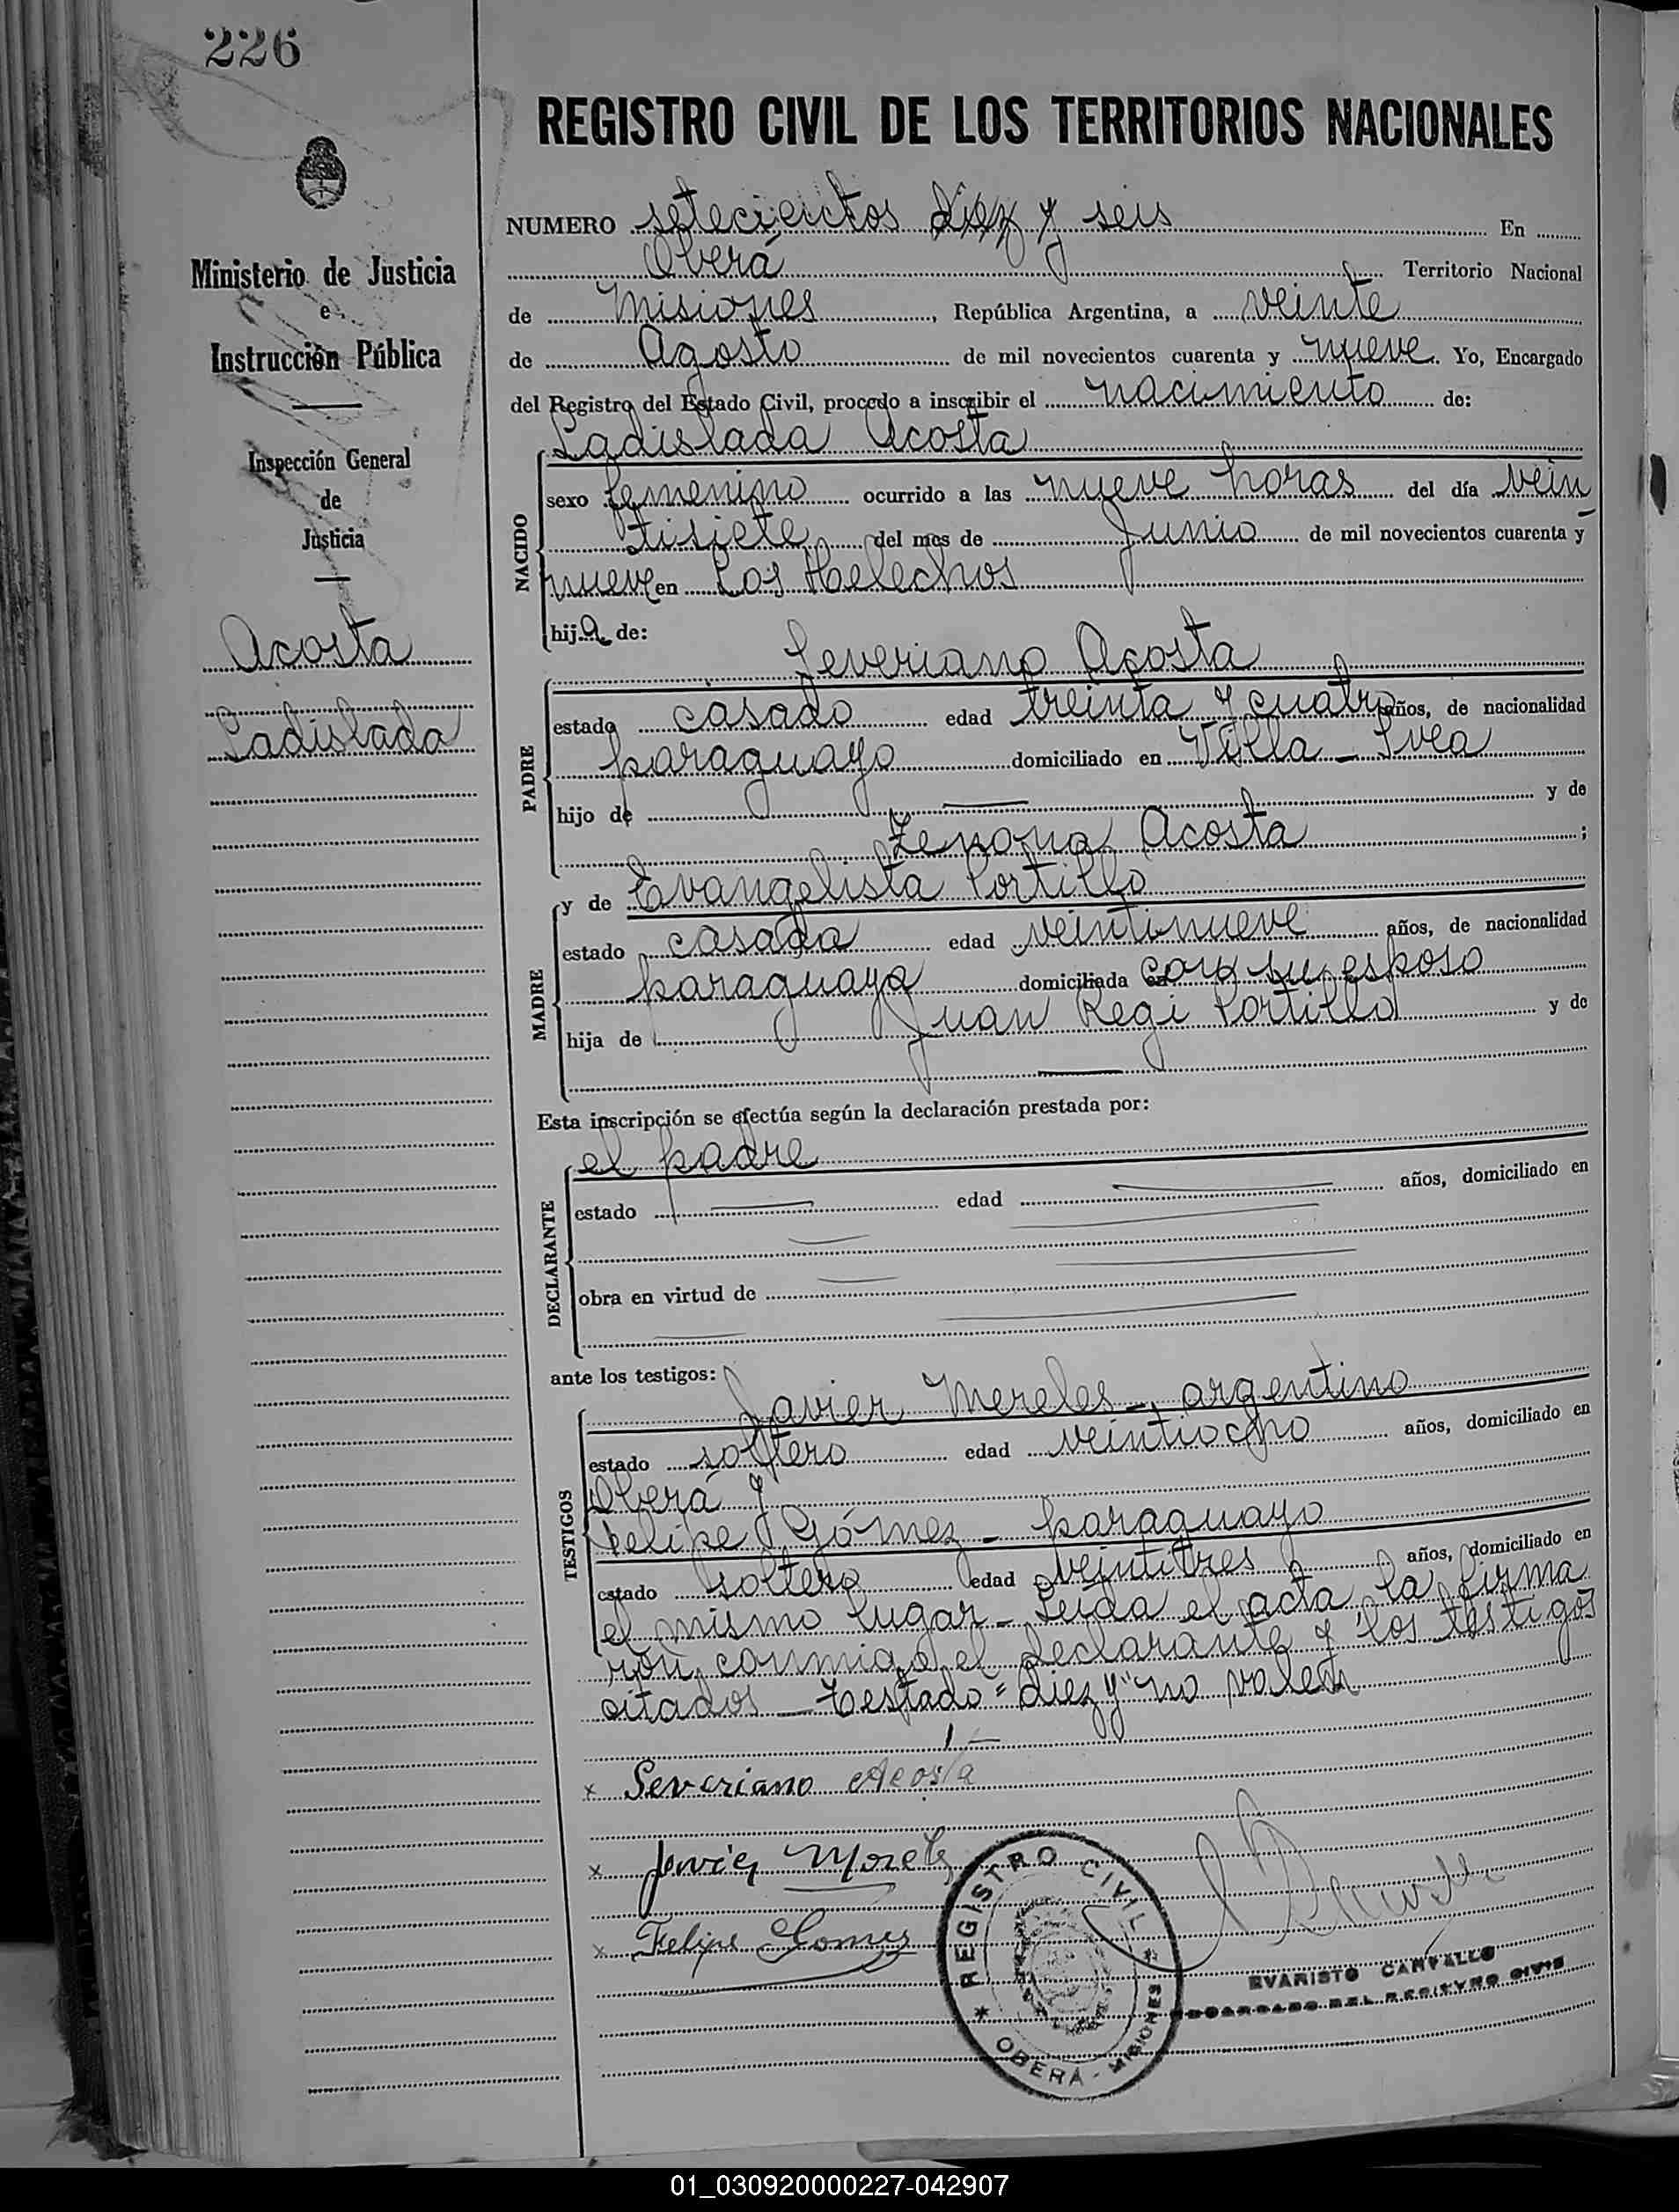 226
REGISTRO CIVIL DE LOS TERRITORIOS NACIONALES
Ministerio de Justicia
e
Instrucción Pública
Inspección General
de
Justicia
Acosta
Ladislada
NUMERO setecientos diez y seis En
Oberá Territorio Nacional
de Misiones, República Argentina, a veinte
de Agosto de mil novecientos cuarenta y nueve. Yo, Encargado
del Registro del Estado Civil, procedo a inscribir el nacimiento de:
Ladislada Acosta
NACIDO
sexo femenino ocurrido a las nueve horas del día vein
tisiete del mes de Junio de mil novecientos cuarenta y
nueve en Los Helechos
hija de:
Severiano Acosta
PADRE
estado casado edad treinta y cuatro años, de nacionalidad
paraguayo domiciliado en Villa - Svea
hijo de y de
Zenona Acosta ;
y de Evangelista Portillo
MADRE
estado casada edad veintinueve años, de nacionalidad
paraguaya domiciliada con su esposo
hija de Juan Regi Portillo y de
Esta inscripción se efectúa según la declaración prestada por:
el padre
DECLARANTE
estado edad años, domiciliado en
obra en virtud de
ante los testigos:
Javier Mereles - argentino
TESTIGOS
estado soltero edad veintiocho años, domiciliado en
Oberá y
Felipe Gómez - paraguayo
estado soltero edad veintitres años, domiciliado en
el mismo lugar - Leída el acta, la firma
ron conmigo el declarante y los testigos
citados - Testado "diez y" no valen
Severiano Acosta
Javier Morel
Felipe Gomes
REGISTRO CIVIL
OBERÁ - MISIONES
EVARISTO CAMPALLO
ENCARGADO DEL REGISTRO CIVIL
01_030920000227-042907